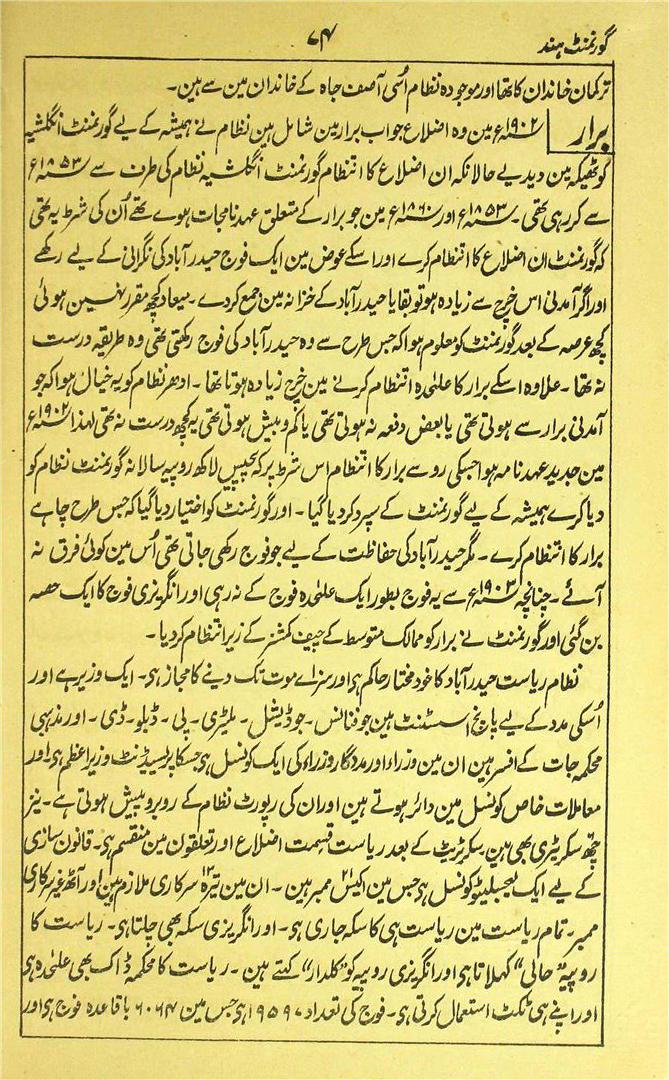 گورنمنٹ ہند
۷۴
ترکمان خاندان کا تھا اور موجودہ نظام اُسی آصف جاہ کے خاندان مین سے ہین۔
برار سنہ ۱۹۰۲ء مین وہ اضلاع جو اب برار مین شامل ہین نظام نے ہمیشہ کے لیے گورنمنٹ انگلشیہ
کو ٹھیکہ مین دیدیے حالانکہ ان اضلاع کا انتظام گورنمنٹ انگلشیہ نظام کی طرف سے سنہ ۱۸۵۳ء
سے کر رہی تھی۔ سنہ ۱۸۵۳ء اور سنہ ۱۸۶۰ء مین جو برار کے متعلق عہدنامجات ہوے تھے اُن کی شرط یہ تھی
کہ گورنمنٹ ان اضلاع کا انتظام کرے اور اسکے عوض مین ایک فوج حیدرآباد کی نگرانی کے لیے رکھے
اور اگر آمدنی اس خرچ سے زیادہ ہو تو بقایا حیدرآباد کے خزانہ مین جمع کردے۔ میعاد کچھ مقرر نہین ہوئی
کچھ عرصہ کے بعد گورنمنٹ کو معلوم ہوا کہ جس طرح سے وہ حیدرآباد کی فوج رکھتی تھی وہ طریقہ درست
نہ تھا۔ علاوہ اسکے برار کا علٰحدہ انتظام کرنے مین خرچ زیادہ ہوتا تھا۔ ادھر نظام کو یہ خیال ہوا کہ جو
آمدنی برار سے ہوتی تھی یا بعض دفعہ نہ ہوتی تھی یا کم و بیش ہوتی تھی یہ کچھ درست نہ تھی لہذا سنہ ۱۹۰۲ء
مین جدید عہدنامہ ہوا جسکی رو سے برار کا انتظام اس شرط پر کہ پچیس لاکھ روپیہ سالانہ گورنمنٹ نظام کو
دیا کرے ہمیشہ کے لیے گورنمنٹ کے سپرد کردیا گیا۔ اور گورنمنٹ کو اختیار دیا گیا کہ جس طرح چاہے
برار کا انتظام کرے۔ مگر حیدرآباد کی حفاظت کے لیے جو فوج رکھی جاتی تھی اُس مین کوئی فرق نہ
آئے۔ چنانچہ سنہ ۱۹۰۳ء سے یہ فوج بطور ایک علٰحدہ فوج کے نہ رہی اور انگریزی فوج کا ایک حصہ
بن گئی اور گورنمنٹ نے برار کو ممالک متوسط کے چیف کمشنر کے زیر انتظام کردیا۔
نظام ریاست حیدرآباد کا خودمختار حاکم ہی اور سزاے موت تک دینے کا مجاز ہی۔ ایک وزیر ہے اور
اُسکی مدد کے لیے پانچ اسسٹنٹ ہین جو فنانس۔ جوڈیشل۔ ملیٹری۔ پی۔ ڈبلو۔ ڈی۔ اور مذہبی
محکمہ جات کے افسر ہین ان مین وزراء اور مددگار وزراء کی ایک کونسل ہی جسکا پریسیڈنٹ وزیر اعظم ہی اور
معاملات خاص کونسل مین دائر ہوتے ہین اور ان کی رپورٹ نظام کے روبرو پیش ہوتی ہے۔ نیز
چھ سکریٹری بھی ہین سکرٹریٹ کے بعد ریاست قسمت اضلاع اور تعلقون مین منقسم ہی۔ قانون سازی
کے لیے ایک لیجسلیٹو کونسل ہی جس مین اکیس۲۱ ممبر ہین۔ ان مین تیرہ۱۳ سرکاری ملازم ہین اور آٹھ غیر سرکاری
ممبر۔ تمام ریاست مین ریاست ہی کا سکہ جاری ہی۔ اور انگریزی سکہ بھی چلتا ہی۔ ریاست کا
روپیہ ”حالی“ کہلاتا ہی اور انگریزی روپیہ کو ”کلدار“ کہتے ہین۔ ریاست کا محکمہ ڈاک بھی علٰحدہ ہی
اور اپنے ہی ٹکٹ استعمال کرتی ہی۔ فوج کی تعداد ۱۹۵۹۷ ہی جس مین ۶۰۶۴ باقاعدہ فوج ہی اور